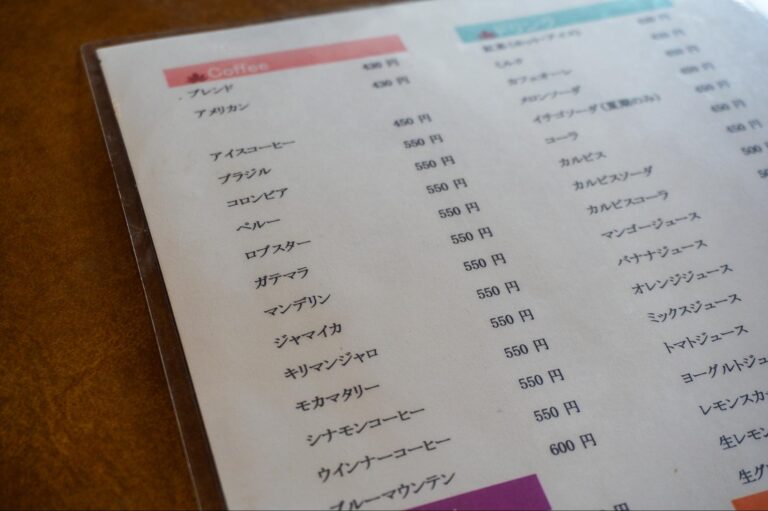 Coffee
ブレンド 430 円
アメリカン 430 円
アイスコーヒー 450 円
ブラジル 550 円
コロンビア 550 円
ペルー 550 円
ロブスター 550 円
ガテマラ 550 円
マンデリン 550 円
ジャマイカ 550 円
キリマンジャロ 550 円
モカマタリー 550 円
シナモンコーヒー 550 円
ウインナーコーヒー 550 円
ブルーマウンテン 600 円
ドリンク
紅茶(ホット・アイス)
ミルク
カフェオーレ
メロンソーダ
イチゴソーダ(夏期のみ)
コーラ
カルピス
カルピスソーダ
カルピスコーラ
マンゴージュース
バナナジュース
オレンジジュース
ミックスジュース
トマトジュース
ヨーグルトジュ
レモンスカ
生レモン
生グ